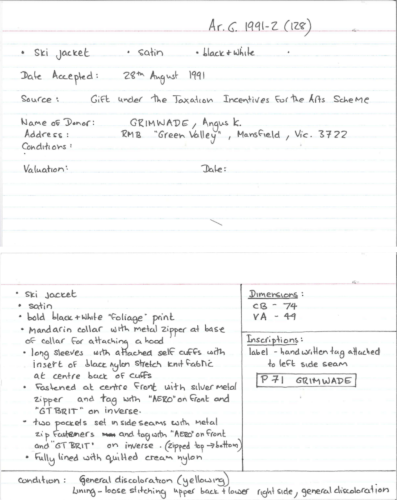 Ar. G. 1991-2 (128)
• Ski jacket • satin • black + white •
Date Accepted: 28th August 1991
Source: Gift under the Taxation Incentives for the Arts Scheme
Name of Donor: GRIMWADE, Angus K.
Address: RMB "Green Valley", Mansfield, Vic. 3722
Conditions:
Valuation: Date:
• Ski jacket
• satin
• bold black + white "foliage" print
• Mandarin collar with metal zipper at base
of collar for attaching a hood
• long sleeves with attached self cuffs with
insert of black nylon stretch knit fabric
at centre back of cuffs
• Fastened at centre front with silver metal
zipper and tag with "AERO" on front and
"GT BRIT" on inverse.
• two pockets set in side seams with metal
zip fasteners and tag with "AERO" on front
and "GT BRIT" on inverse. (zipped top → bottom)
• Fully lined with quilted cream nylon
Dimensions:
CB - 74
VA - 49
Inscriptions:
label - handwritten tag attached
to left side seam
P 71 GRIMWADE
condition: General discoloration (yellowing)
Lining - loose stitching upper back + lower right side, general discoloration